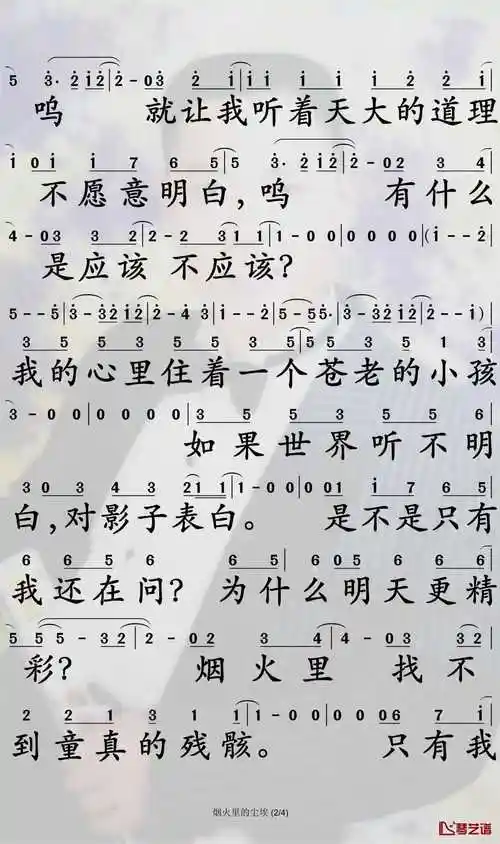 5 3· 2 1 2 | 2 - 0 3 2 1 | 1 1 1 1 1 2 2 2 1
呜 就让我听着天大的道理
1 0 1 1 7 6 5 | 5 3· 2 1 2 | 2 - 0 2 3 4
不愿意明白，呜 有什么
4 - 0 3 3 2 | 2 - 2 3 1 1 | 1 - 0 0 | 0 0 0 0 | (1 - - 2
是应该 不应该？
我的心里住着一个苍老的小孩
3 - 0 0 | 0 0 0 0 | 3 5 5 3 5 5 6
如果世界听不明
3 0 3 4 3 2 1 1 | 1 - 0 0 | 0 0 0 1 1 7 6 5
白，对影子表白。 是不是只有
6 6 5 6 6 5 | 6 0 5 6 6 6 5
我还在问？ 为什么明天更精
5 5 5 - 3 2 | 2 - 0 2 3 4 | 4 - 0 3 3 2
彩？ 烟火里 找不
2 2 1 3 1 1 | 1 - 0 0 | 0 0 0 6 7 1
到童真的残骸。 只有我
烟火里的尘埃 (2/4)
琴艺谱